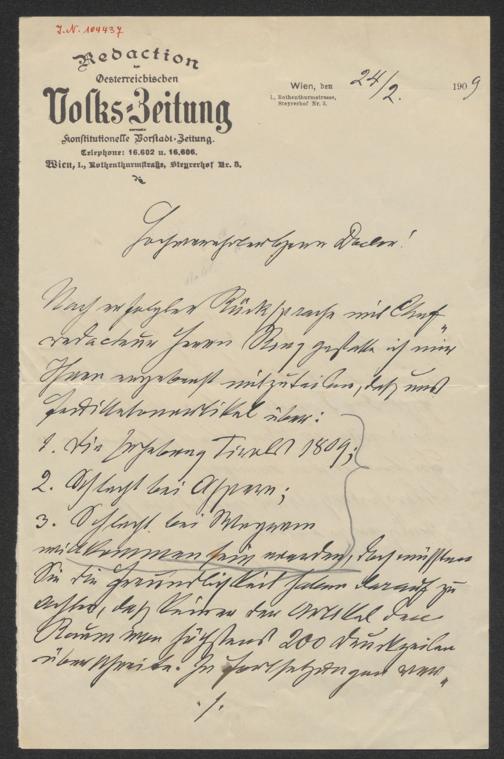 I.N. 104437
Redaction
der
Oesterreichischen
Volks-Zeitung
Konstitutionelle Vorstadt-Zeitung.
Telephone: 16.602 u. 16.606.
Wien, I., Rothenthurmstraße, Steyrerhof Nr. 3.
Wien, den 24/2. 1909
I., Rothenthurmstrasse,
Steyrerhof Nr. 3.
Hochverehrter Herr Doctor!
Nach erfolgter Rücksprache mit Chef-
redacteur Herrn Ring gestatte ich mir
Ihnen ergebenst mitzuteilen, daß uns
Feuilletonartikel über:
1. Die Erhebung Tirols 1809;
2. Schlacht bei Aspern;
3. Schlacht bei Wagram
willkommen sein werden, doch müssten
Sie die Freundlichkeit haben darauf zu
achten, daß keiner der Artikel den
Raum von höchstens 200 Druckzeilen
überschreite. Zu Fortsetzungen ver-
./.